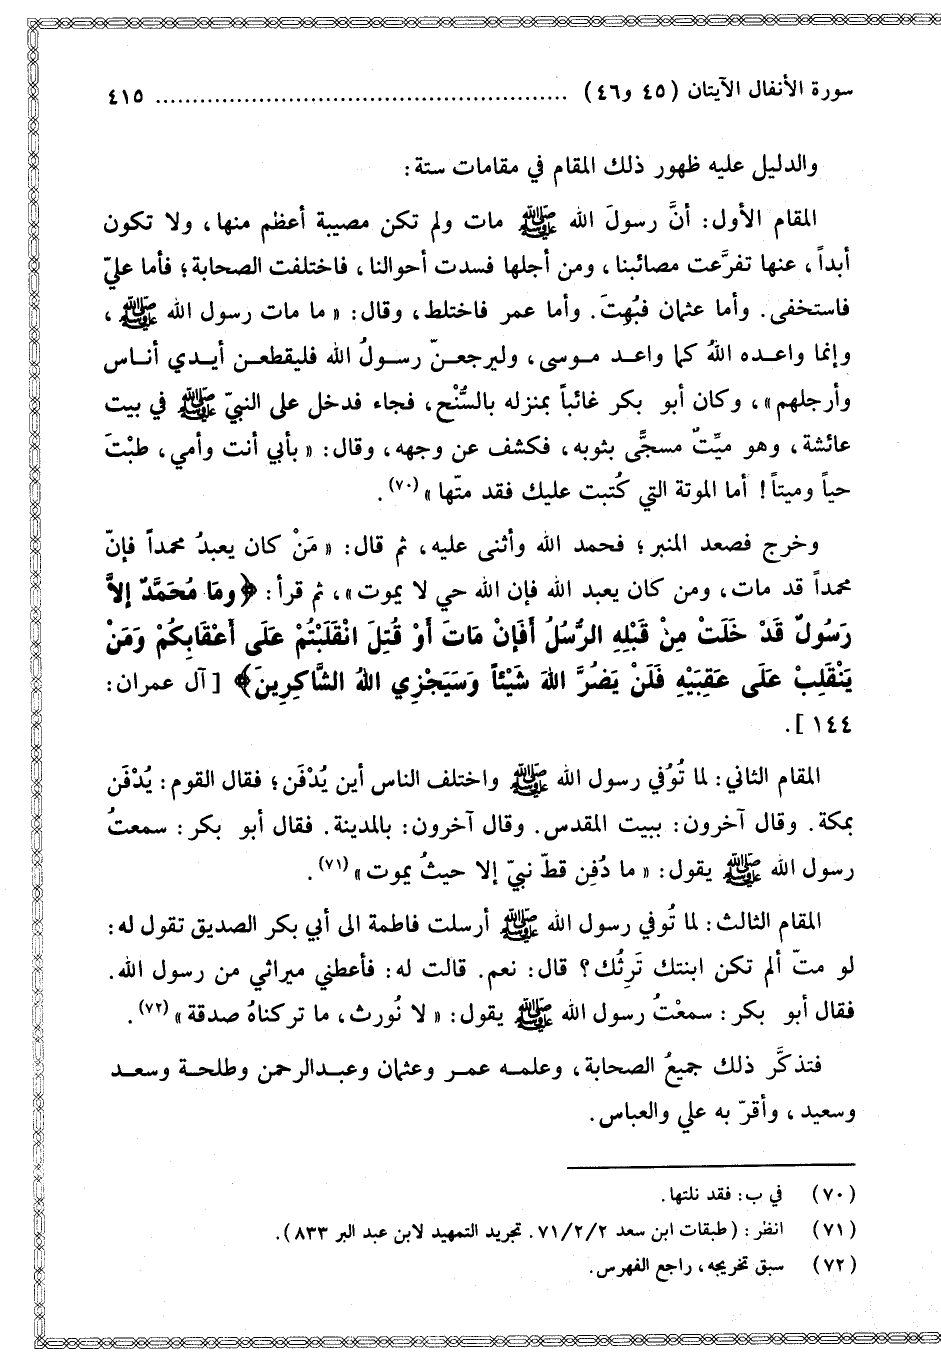 سورة الأنفال الآيتان ( ٤٥ و٤٦ ) ........................................................ ٤١٥
والدليل عليه ظهور ذلك المقام في مقامات ستة :
المقام الأول : أنَّ رسولَ الله ﷺ مات ولم تكن مصيبة أعظم منها ، ولا تكون
أبداً ، عنها تفرَّعت مصائبنا ، ومن أجلها فسدت أحوالنا ، فاختلفت الصحابة ؛ فأما عليّ
فاستخفى . وأما عثمان فبُهِتَ . وأما عمر فاختلط ، وقال : « ما مات رسول الله ﷺ ،
وإنما واعده اللهُ كما واعد موسى ، وليرجعنّ رسولُ الله فليقطعن أيدي أناس
وأرجلهم » ، وكان أبو بكر غائباً بمنزله بالسُّنْح ، فجاء فدخل على النبيّ ﷺ في بيت
عائشة ، وهو ميِّتٌ مسجًّى بثوبه ، فكشف عن وجهه ، وقال : « بأبي أنت وأمي ، طبْتَ
حياً وميتاً ! أما الموتة التي كُتبت عليك فقد متّها » (٧٠) .
وخرج فصعد المنبر ؛ فحمد الله وأثنى عليه ، ثم قال : « مَنْ كان يعبدُ محمداً فإنّ
محمداً قد مات ، ومن كان يعبد الله فإن الله حي لا يموت » ، ثم قرأ : ﴿ ومَا مُحَمَّدٌ إلاَّ
رَسُولٌ قَدْ خَلَتْ مِنْ قَبْلِهِ الرُّسُلُ أَفَإنْ مَاتَ أوْ قُتِلَ انْقَلَبْتُمْ عَلَى أعْقَابِكُمْ وَمَنْ
يَنْقَلِبْ عَلَى عَقِبَيْهِ فَلَنْ يَضُرَّ اللهَ شَيْئاً وَسَيَجْزِي اللهُ الشَّاكِرِينَ ﴾ [ آل عمران :
١٤٤ ] .
المقام الثاني : لما تُوُفي رسول الله ﷺ واختلف الناس أين يُدْفَن ؛ فقال القوم : يُدْفَن
بمكة . وقال آخرون : ببيت المقدس . وقال آخرون : بالمدينة . فقال أبو بكر : سمعتُ
رسول الله ﷺ يقول : « ما دُفِن قطّ نبيّ إلا حيثُ يموت » (٧١) .
المقام الثالث : لما تُوفي رسول الله ﷺ أرسلت فاطمة الى أبي بكر الصديق تقول له :
لو متّ ألم تكن ابنتك تَرِثُك ؟ قال : نعم . قالت له : فأعطني ميراثي من رسول الله .
فقال أبو بكر : سمعْتُ رسول الله ﷺ يقول : « لا نُورث ، ما تركناهُ صدقة » (٧٢) .
فتذكَّر ذلك جميعُ الصحابة ، وعلمه عمر وعثمان وعبدالرحمن وطلحة وسعد
وسعيد ، وأقرّ به علي والعباس .
(٧٠) في ب : فقد نلتها .
(٧١) انظر : ( طبقات ابن سعد ٧١/٢/٢ . تجريد التمهيد لابن عبد البر ٨٣٣ ) .
(٧٢) سبق تخريجه ، راجع الفهرس .